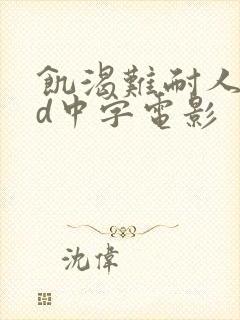 飢渴難耐人
d中字電影
沈偉